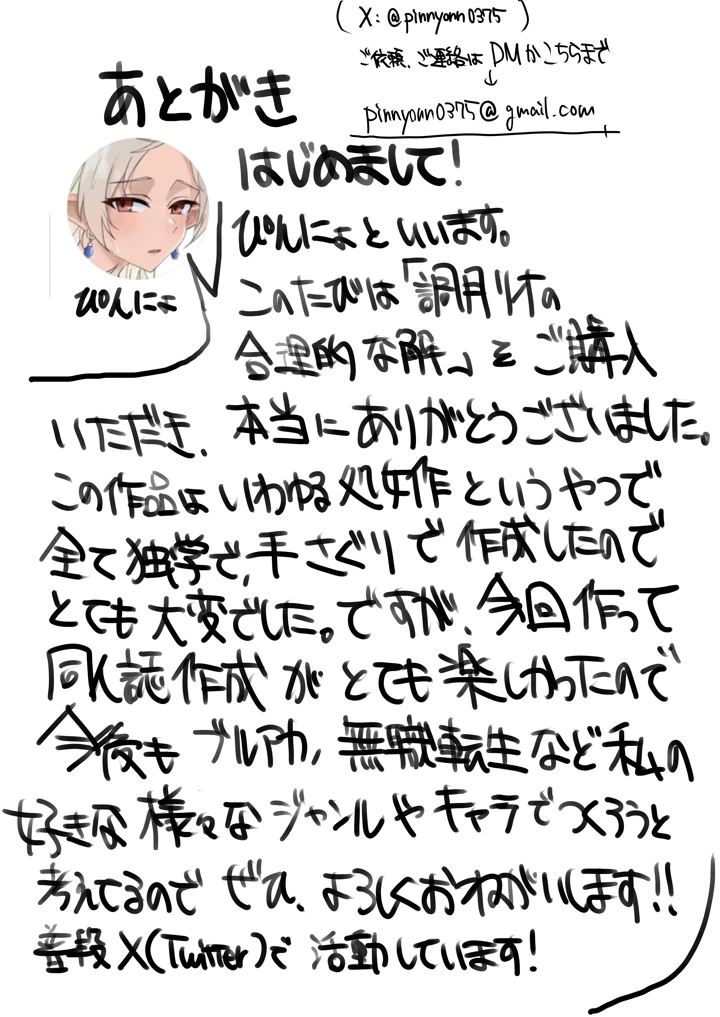 (X:@pinnyonn0375)
ご依頼、ご連絡はDMかこちらまで
↓
pinnyonn0375@gmail.com
あとがき
はじめまして!
ぴんにょといいます。
ぴんにょ
このたびは「調月リオの
合理的な解」をご購入
いただき、本当にありがとうございました。
この作品はいわゆる処女作というやつで
全て独学で、手さぐりで作成したので
とても大変でした。ですが、今回作って
同人誌作成がとても楽しかったので
今後もブルアカ、無職転生など私の
好きな様々なジャンルやキャラでつくろうと
考えてるのでぜひ、よろしくおねがいします!!
普段X(Twitter)で活動しています!